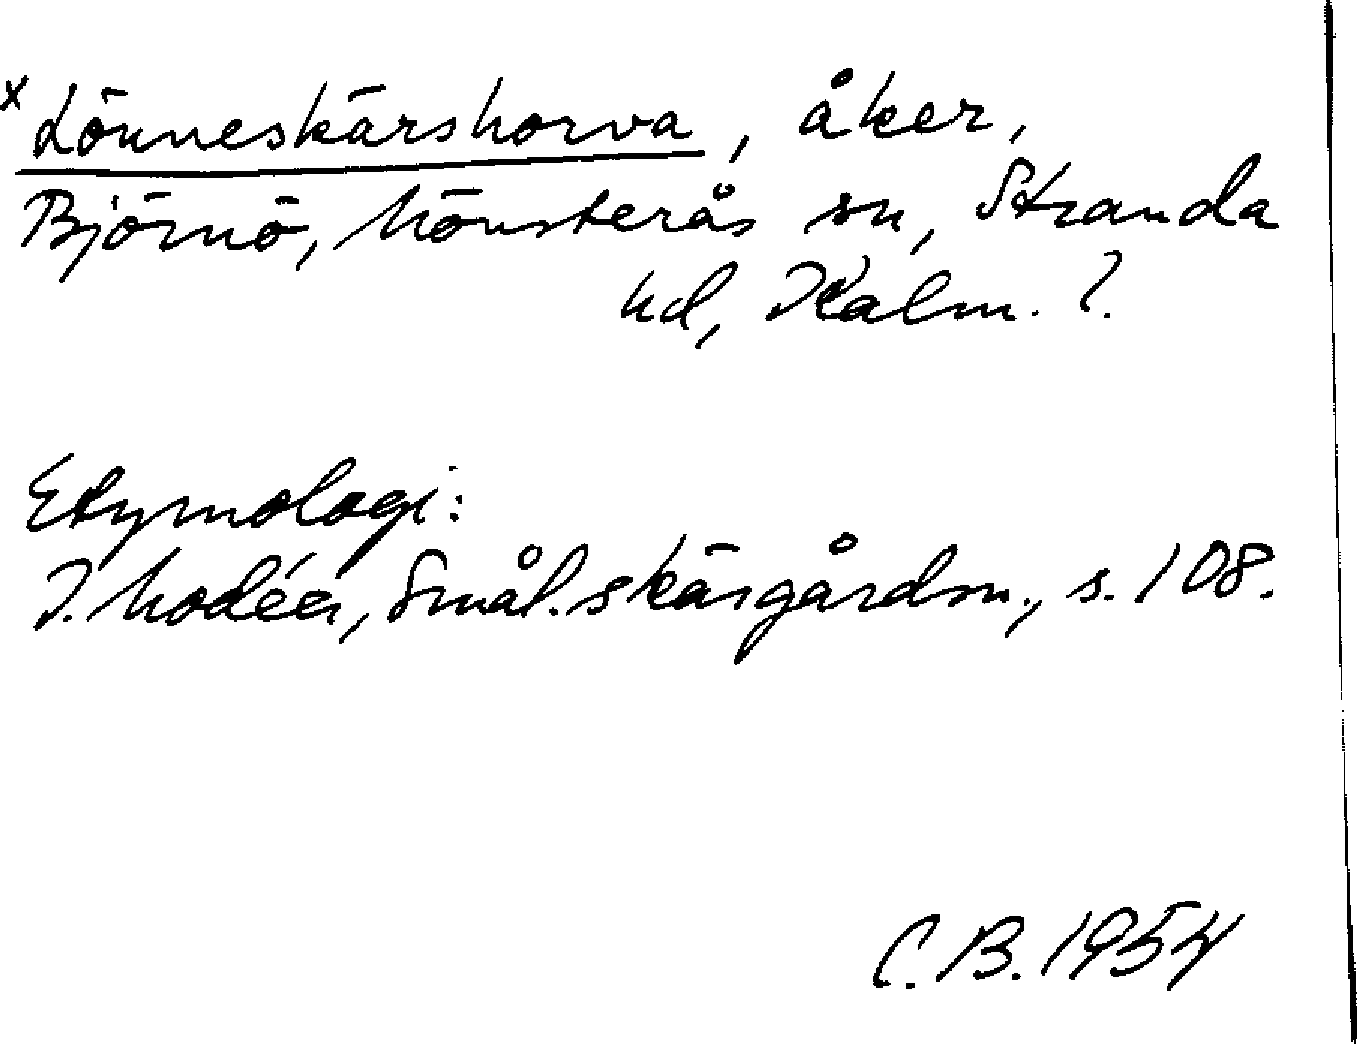 x Lönneskärshorva, åker,
Björnö, Mönsterås sn, Stranda
hd, Kalm. l.
Etymologi:
I. Modéer, Smål. skärgårdsn., s. 108.
C. B. 1954